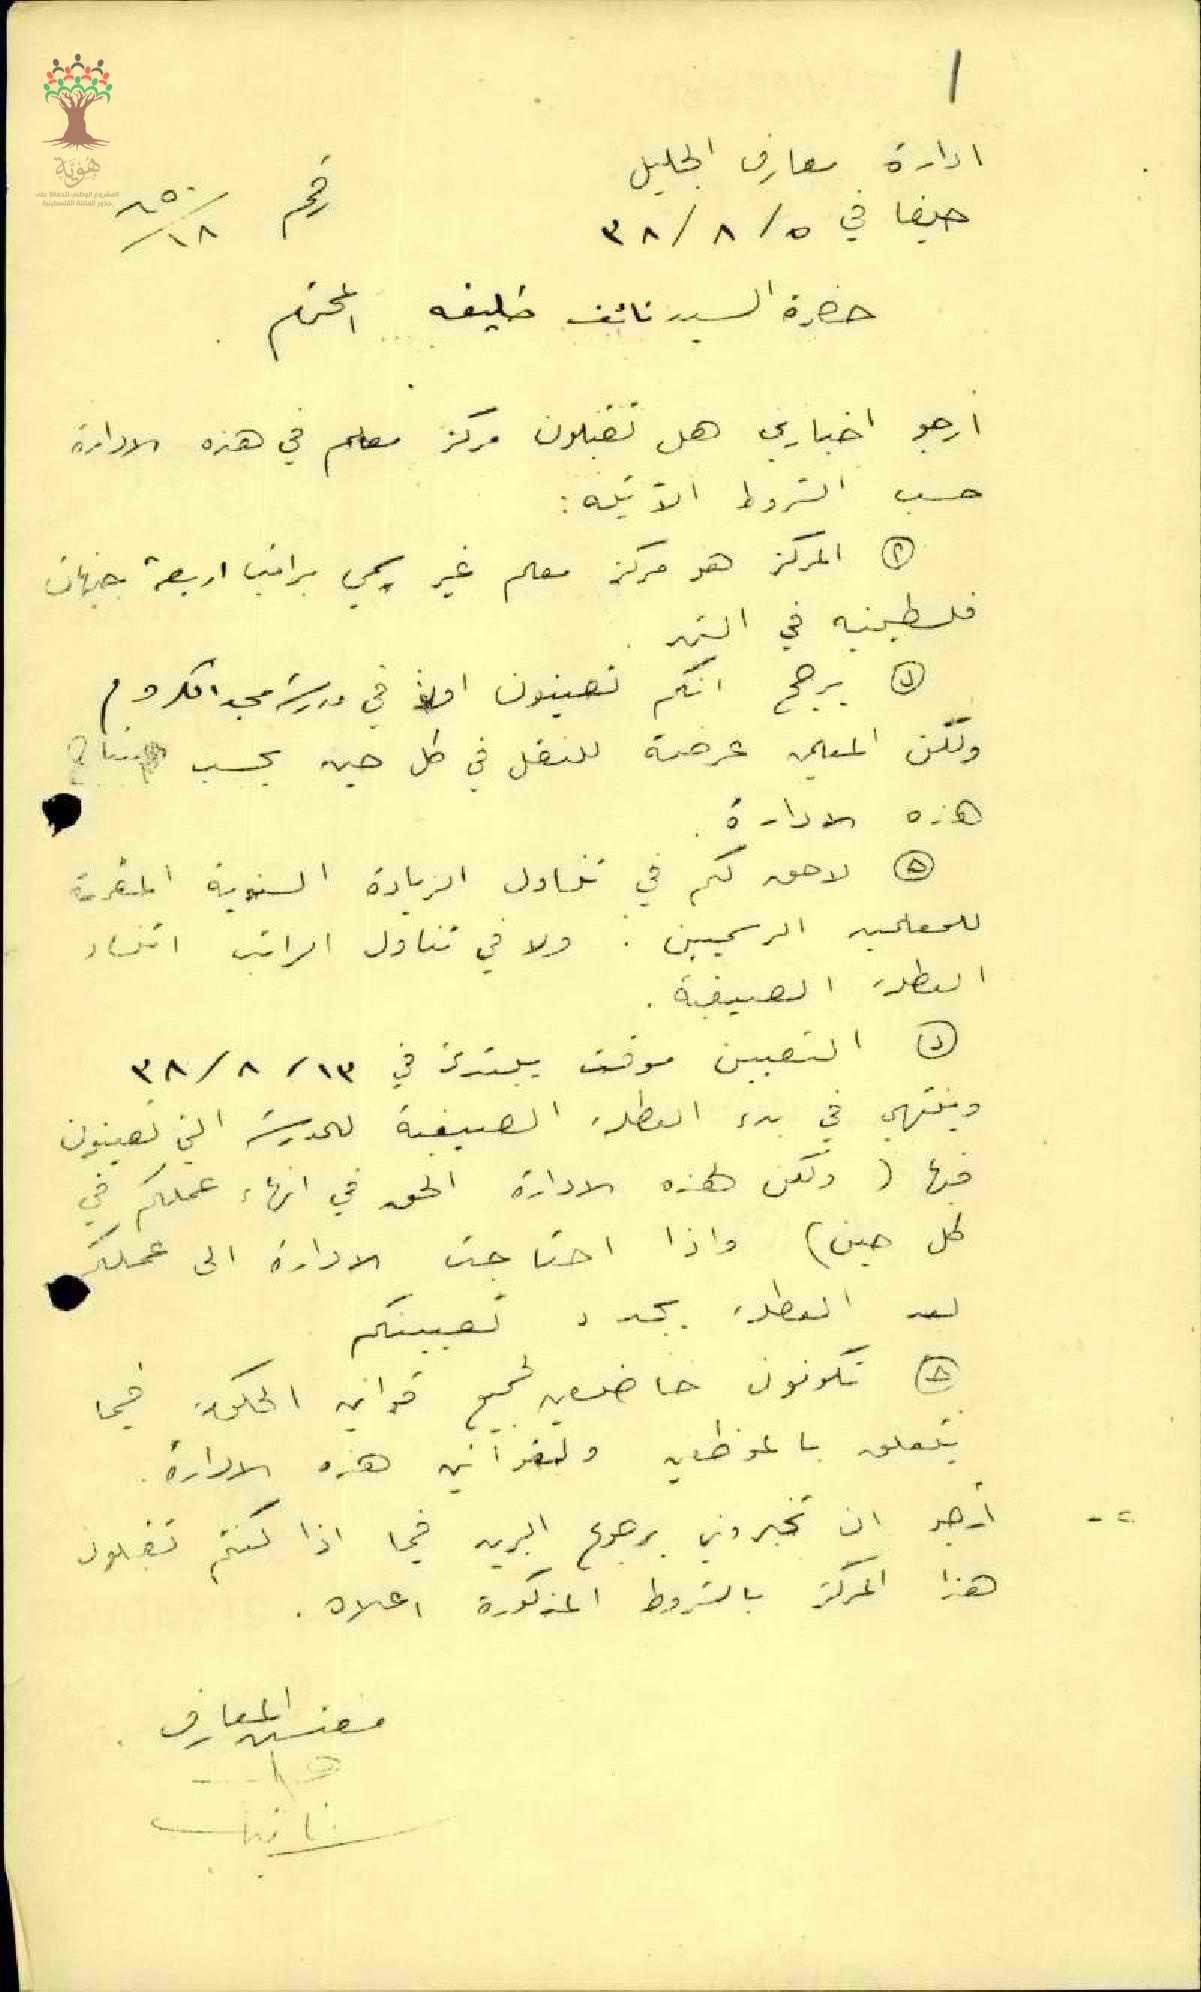 ١
هُويّة
المشروع الوطني للحفاظ على
جذور العائلة الفلسطينية
ادارة معارف الجليل
حيفا في ٥/٨/٣٨ رقم ٨٥٠/١٨
حضرة السيد نائف خليفه المحترم
ارجو اخباري هل تقبلون مركز معلم في هذه الادارة
حسب الشروط الآتيه:
المركز هو مركز معلم غير رسمي براتب اربعة جنيهات
فلسطينيه في الشهر.
ب يرجح انكم تعينون اولا في مدرسة مجد الكروم
ولكن المعلمين عرضة للنقل في كل حين بحسب
هذه الادارة.
ج لاحق لكم في تناول الزيادة السنوية المقررة
للمعلمين الرسميين. ولا في تناول الراتب اثناء
العطلة الصيفية.
د التعيين موقت يبتدئ في ١٣/٨/٣٨
وينتهي في بدء العطلة الصيفية للمدرسة التي تعينون
فيها (ولكن لهذه الادارة الحق في انهاء عملكم في
كل حين) واذا احتاجت الادارة الى عملكم
بعد العطلة يجدد تعيينكم
ه تكونون خاضعين لجميع قوانين الحكومة فيما
يتعلق بالموظفين ولقوانين هذه الادارة.
٢- أرجو ان تخبروني برجوع البريد فيما اذا كنتم تقبلون
هذا المركز بالشروط المذكورة اعلاه.
مفتش المعارف